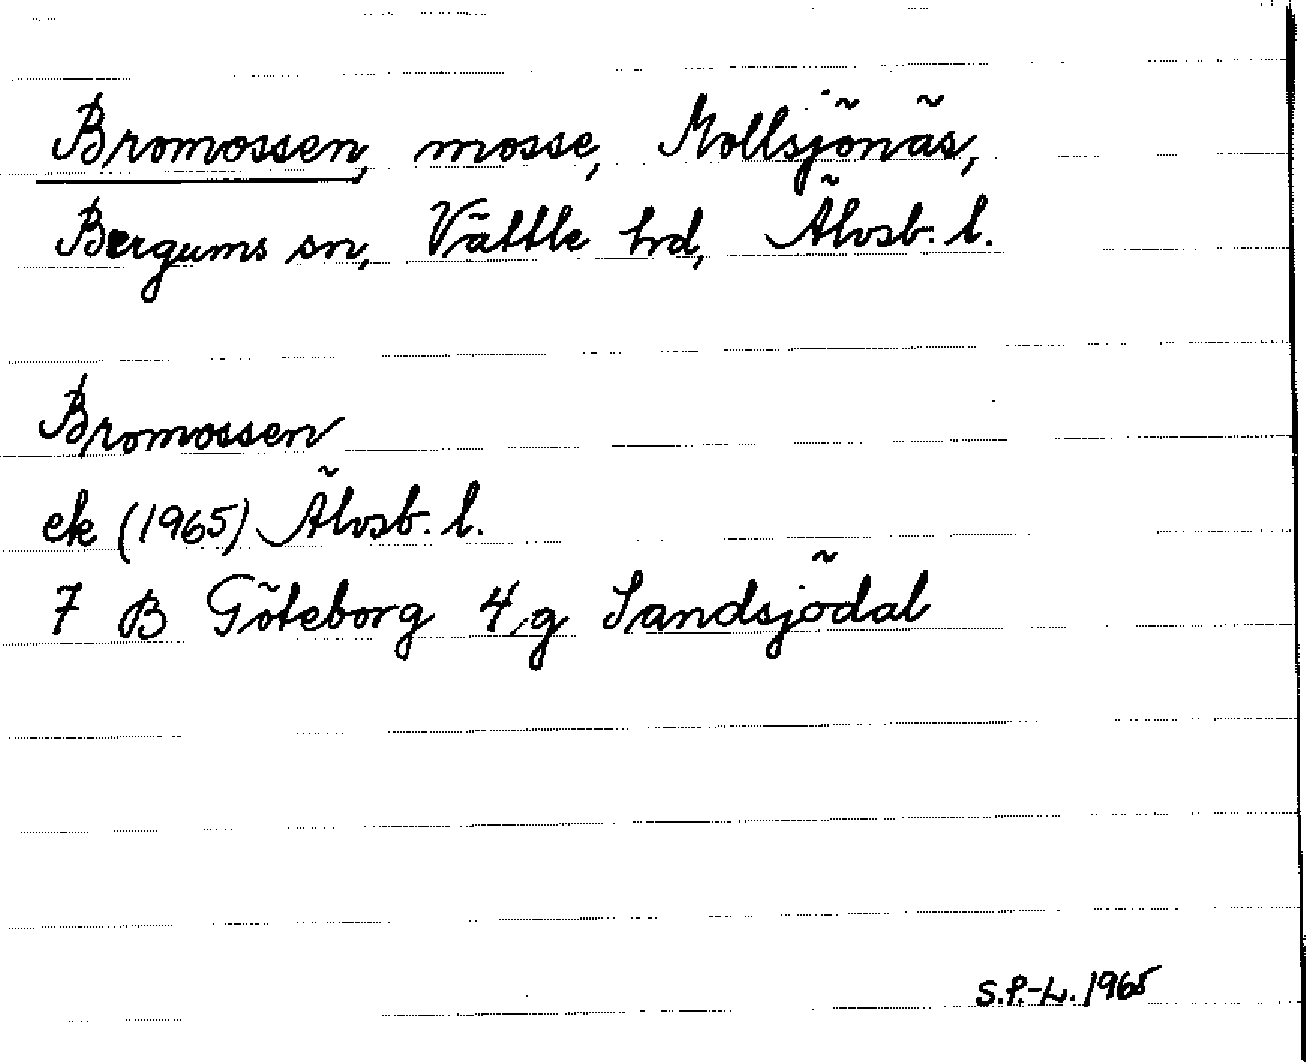 Bromossen, mosse, Mollsjönäs,
Bergums sn, Vättle hd, Älvsb. l.
Bromossen
ek (1965) Älvsb. l.
7 B Göteborg 4 g Sandsjödal
S.P.-L. 1965